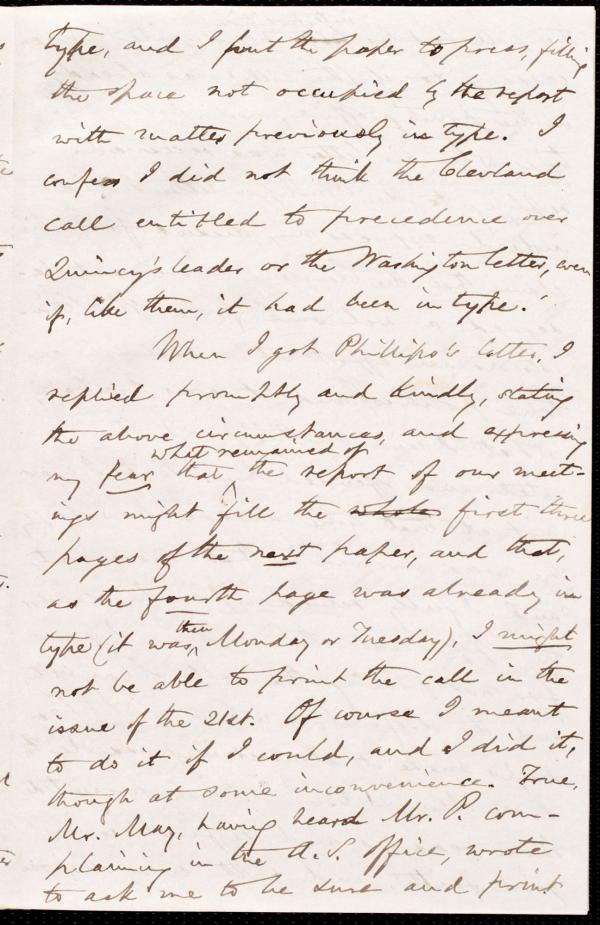 type, and I put the paper to press, filling
the space not occupied by the report
with matter previously in type. I
confess I did not think the Cleveland
call entitled to precedence over
Quincy's leader or the Washington letter, even
if, like them, it had been in type.
When I got Phillips's letter, I
replied promptly and kindly, stating
the above circumstances, and expressing
what remained of
my fear that the report of our meet-
ings might fill the whole first three
pages of the next paper, and that,
as the fourth page was already in
then
type (it was Monday or Tuesday), I might
not be able to print the call in the
issue of the 21st. Of course I meant
to do it if I could, and I did it,
though at some inconvenience. True,
Mr. May, having heard Mr. P. com-
plaining in the A.S. office, wrote
to ask me to be sure and print